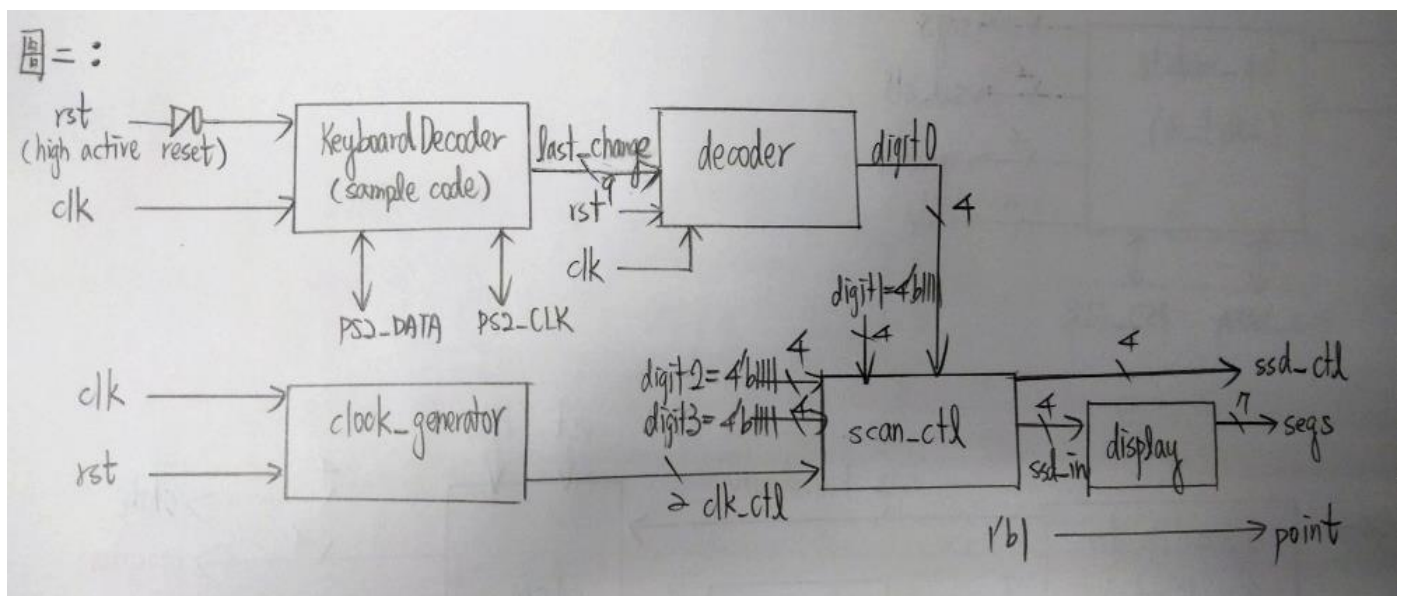 圖二：
rst
(high active reset)
clk
KeyboardDecoder
(sample code)
PS2_DATA
PS2_CLK
last_change
9
rst
clk
decoder
digit0
4
digit1=4'b1111
4
clk
rst
clock_generator
digit2=4'b1111
4
digit3=4'b1111
4
2 clk_ctl
scan_ctl
4
ssd_ctl
4
ssd_in
display
7
segs
1'b1
point